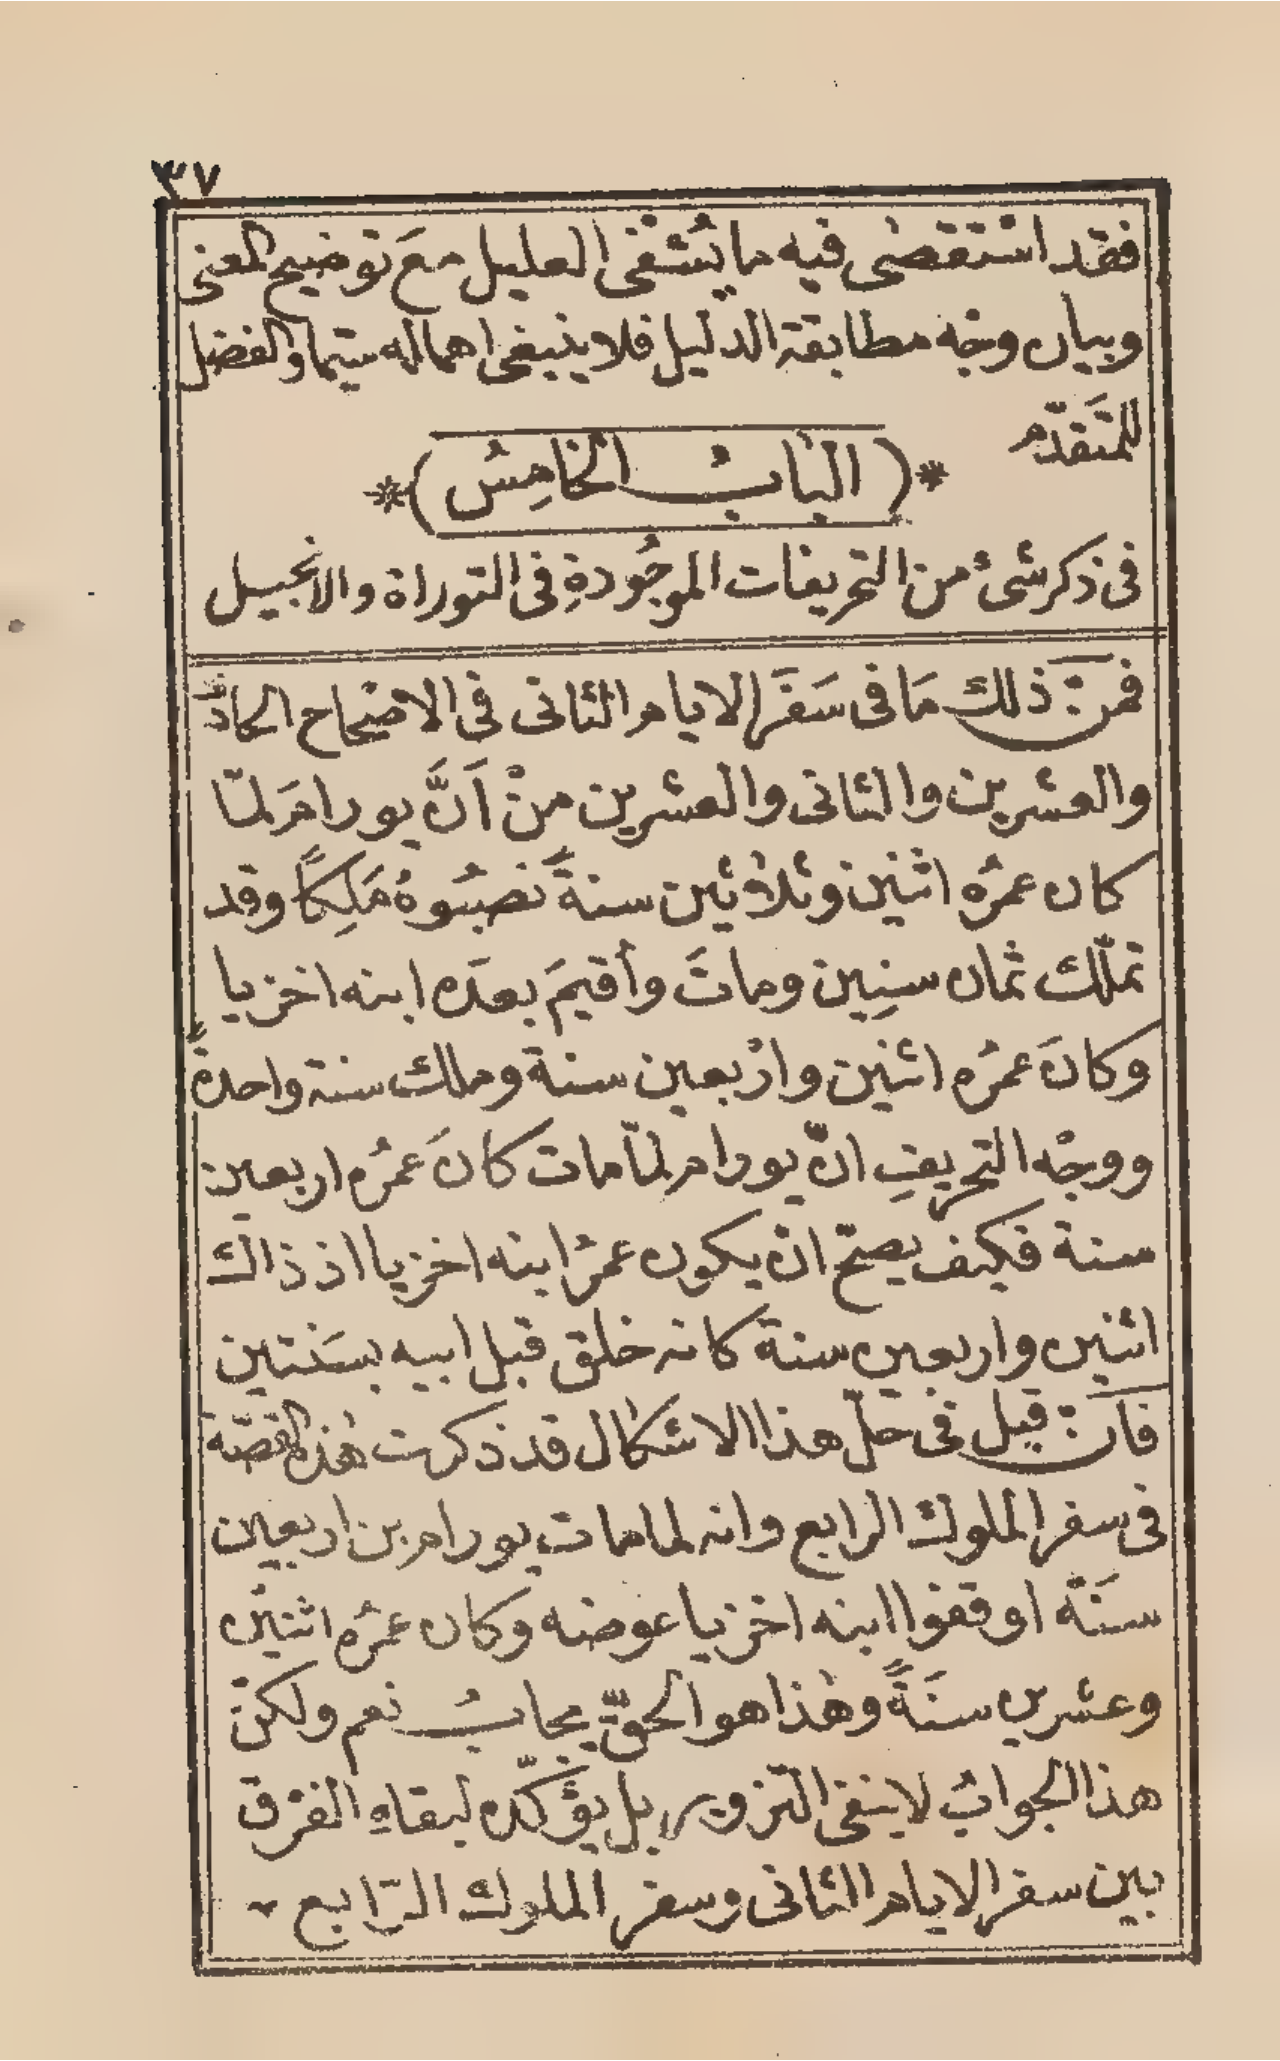 ٣٧
فقد استقضى فيه ما يُشفى العليل معَ توضيح المعنى
وبيان وجْه مطابقة الدليل فلا ينبغى اهماله سيّما والفضل
للمتَقدّم
*( البابُ الخامِسُ )*
فى ذكر شئ من التحريفات الموجُودةِ فى التوراة والانجيل
فمنْ ذلك مَا فى سَفَر الايام الثانى فى الاصْحاح الحادّ
والعشرين والثانى والعشرين منْ اَنَّ يورامَ لمّا
كان عمرُه اثنين وثلاثين سنةً نصبُوهُ مَلِكاً وقد
تملّك ثمان سنِين وماتَ وأقيمَ بعدَه ابنه اخزيا
وكانَ عمرُه اثنين وارْبعين سنة وملك سنة واحدةً
ووجْه التحريفِ انّ يورام لمّا مات كانَ عمرُه اربعين
سنة فكيف يصحّ انْ يكون عمرُ ابنه اخزيا اذ ذاك
اثنين واربعين سنة كانه خلق قبل ابيه بسَنتين
فانْ قيل فى حلّ هذا الاشكال قد ذكرت هٰذه القصّة
فى سفر الملوك الرابع وانه لما مات يورام بن اربعين
سنَة اوقفوا ابنه اخزيا عوضه وكان عمرُه اثنين
وعشرين سنَةً وهٰذا هو الحقّ يجابُ نعم ولكنّ
هذا الجوابُ لا ينفى التزوير بل يؤكّده لبقاءِ الفرْق
بين سفر الايام الثانى وسفر الملوك الرّابع ~